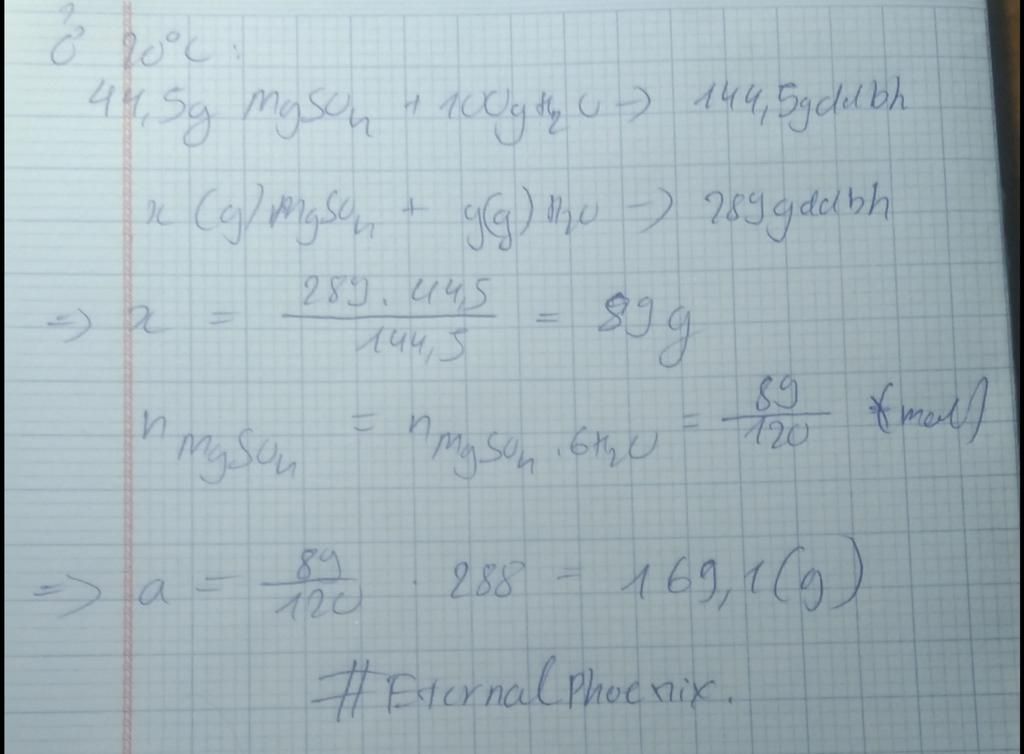 Ở 20°C:
44,5g MgSO₄ + 100g H₂O → 144,5g ddbh
x (g) MgSO₄ + y(g) H₂O → 289 g ddbh
=> x = \frac{289 . 44,5}{144,5} = 89g
n_{MgSO₄} = n_{MgSO₄ . 6H₂O} = \frac{89}{120} (mol)
=> a = \frac{89}{120} . 288 = 169,1(g)
#EternalPhoenix.